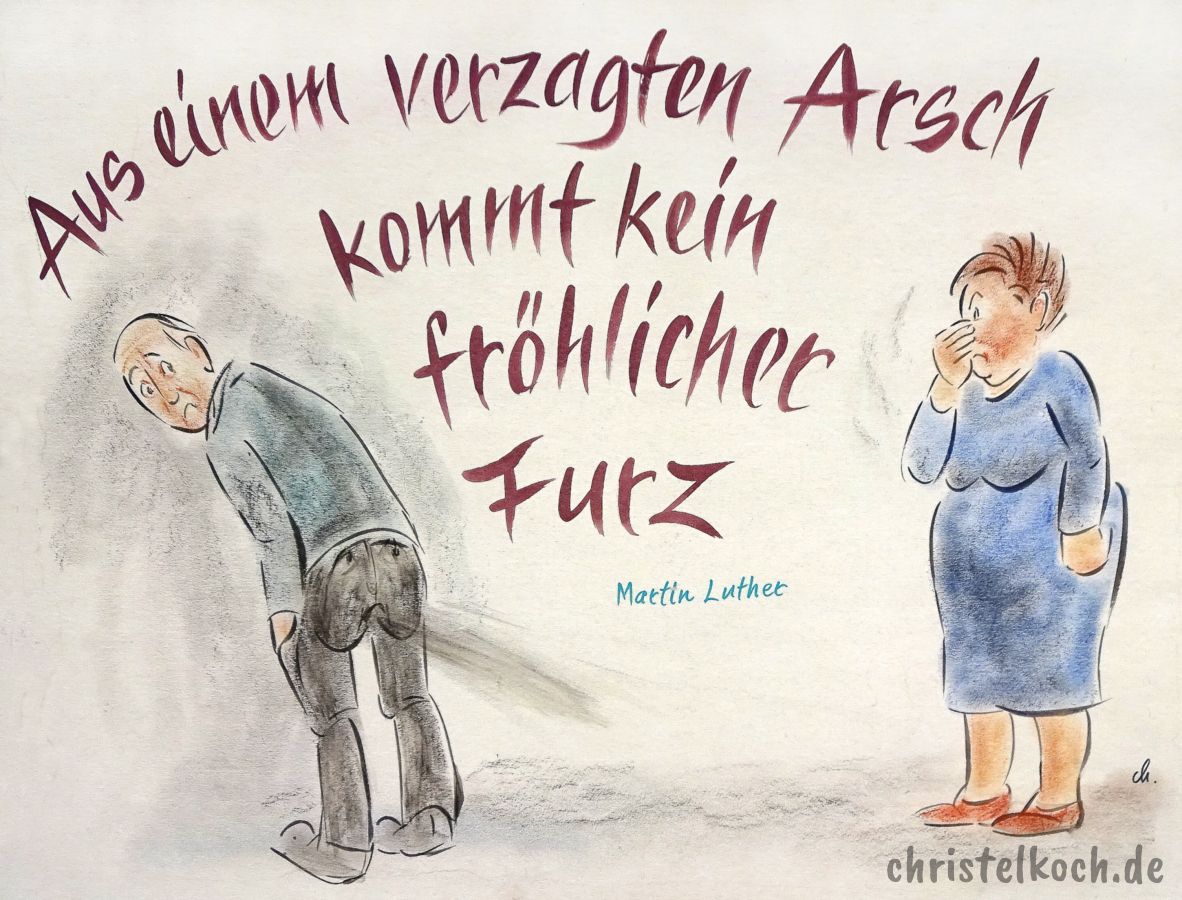 Aus einem verzagten Arsch
kommt kein
fröhlicher
Furz
Martin Luther
ch.
christelkoch.de